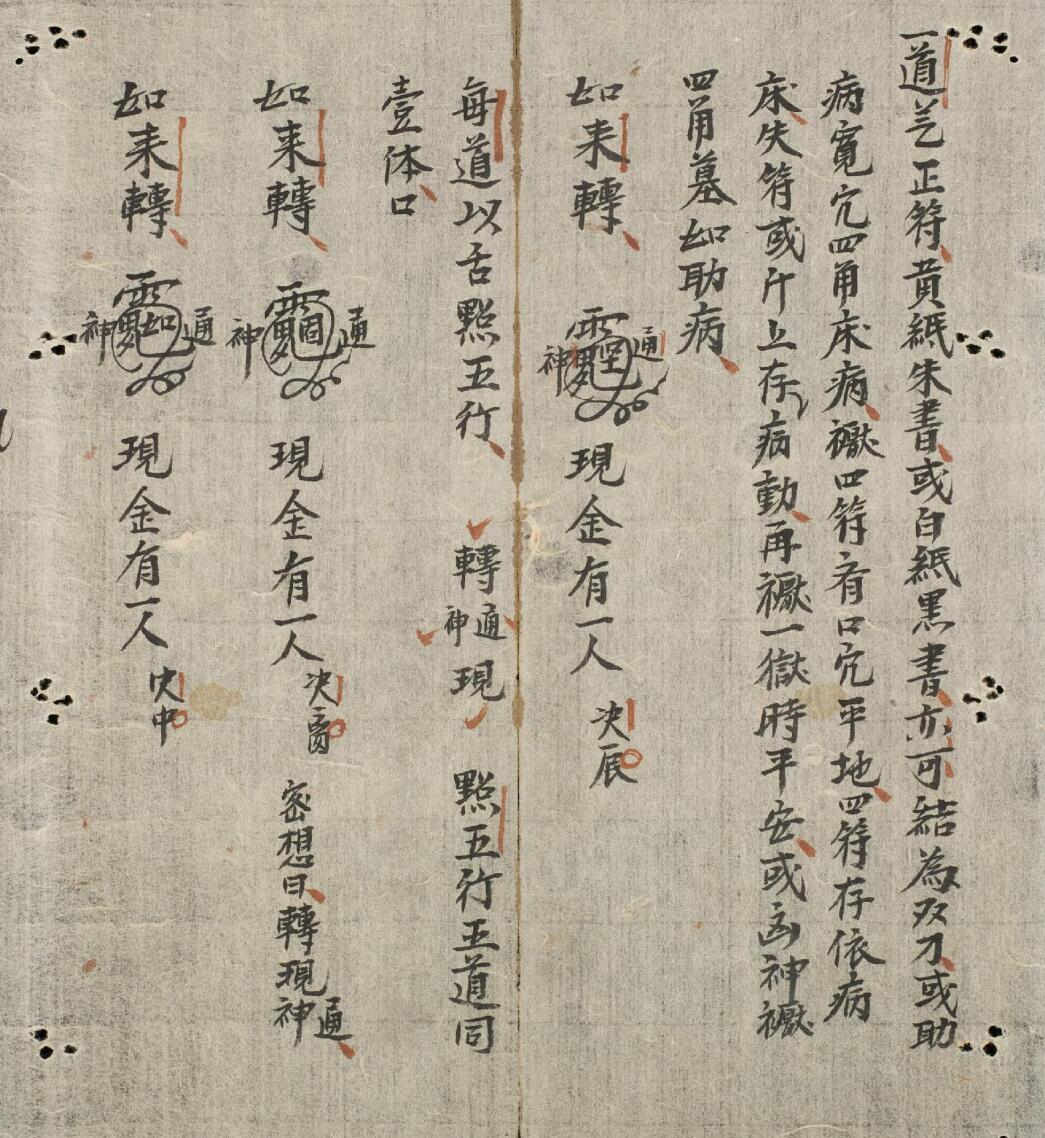 一道芝正符黄紙朱書或白紙黒書亦可結為双刀或助
病寛穴四角床病禳四符有口穴平地四符存依病
床失符或斤上存病動再禳一獄時平安或凶神禳
四角墓如助病
如来轉 通神 現金有一人 决辰
每道以舌點五行 轉通神現 點五行五道同
壹体口
如来轉 通神 現金有一人 决 密想曰轉現通神
如来轉 通神 現金有一人 决中